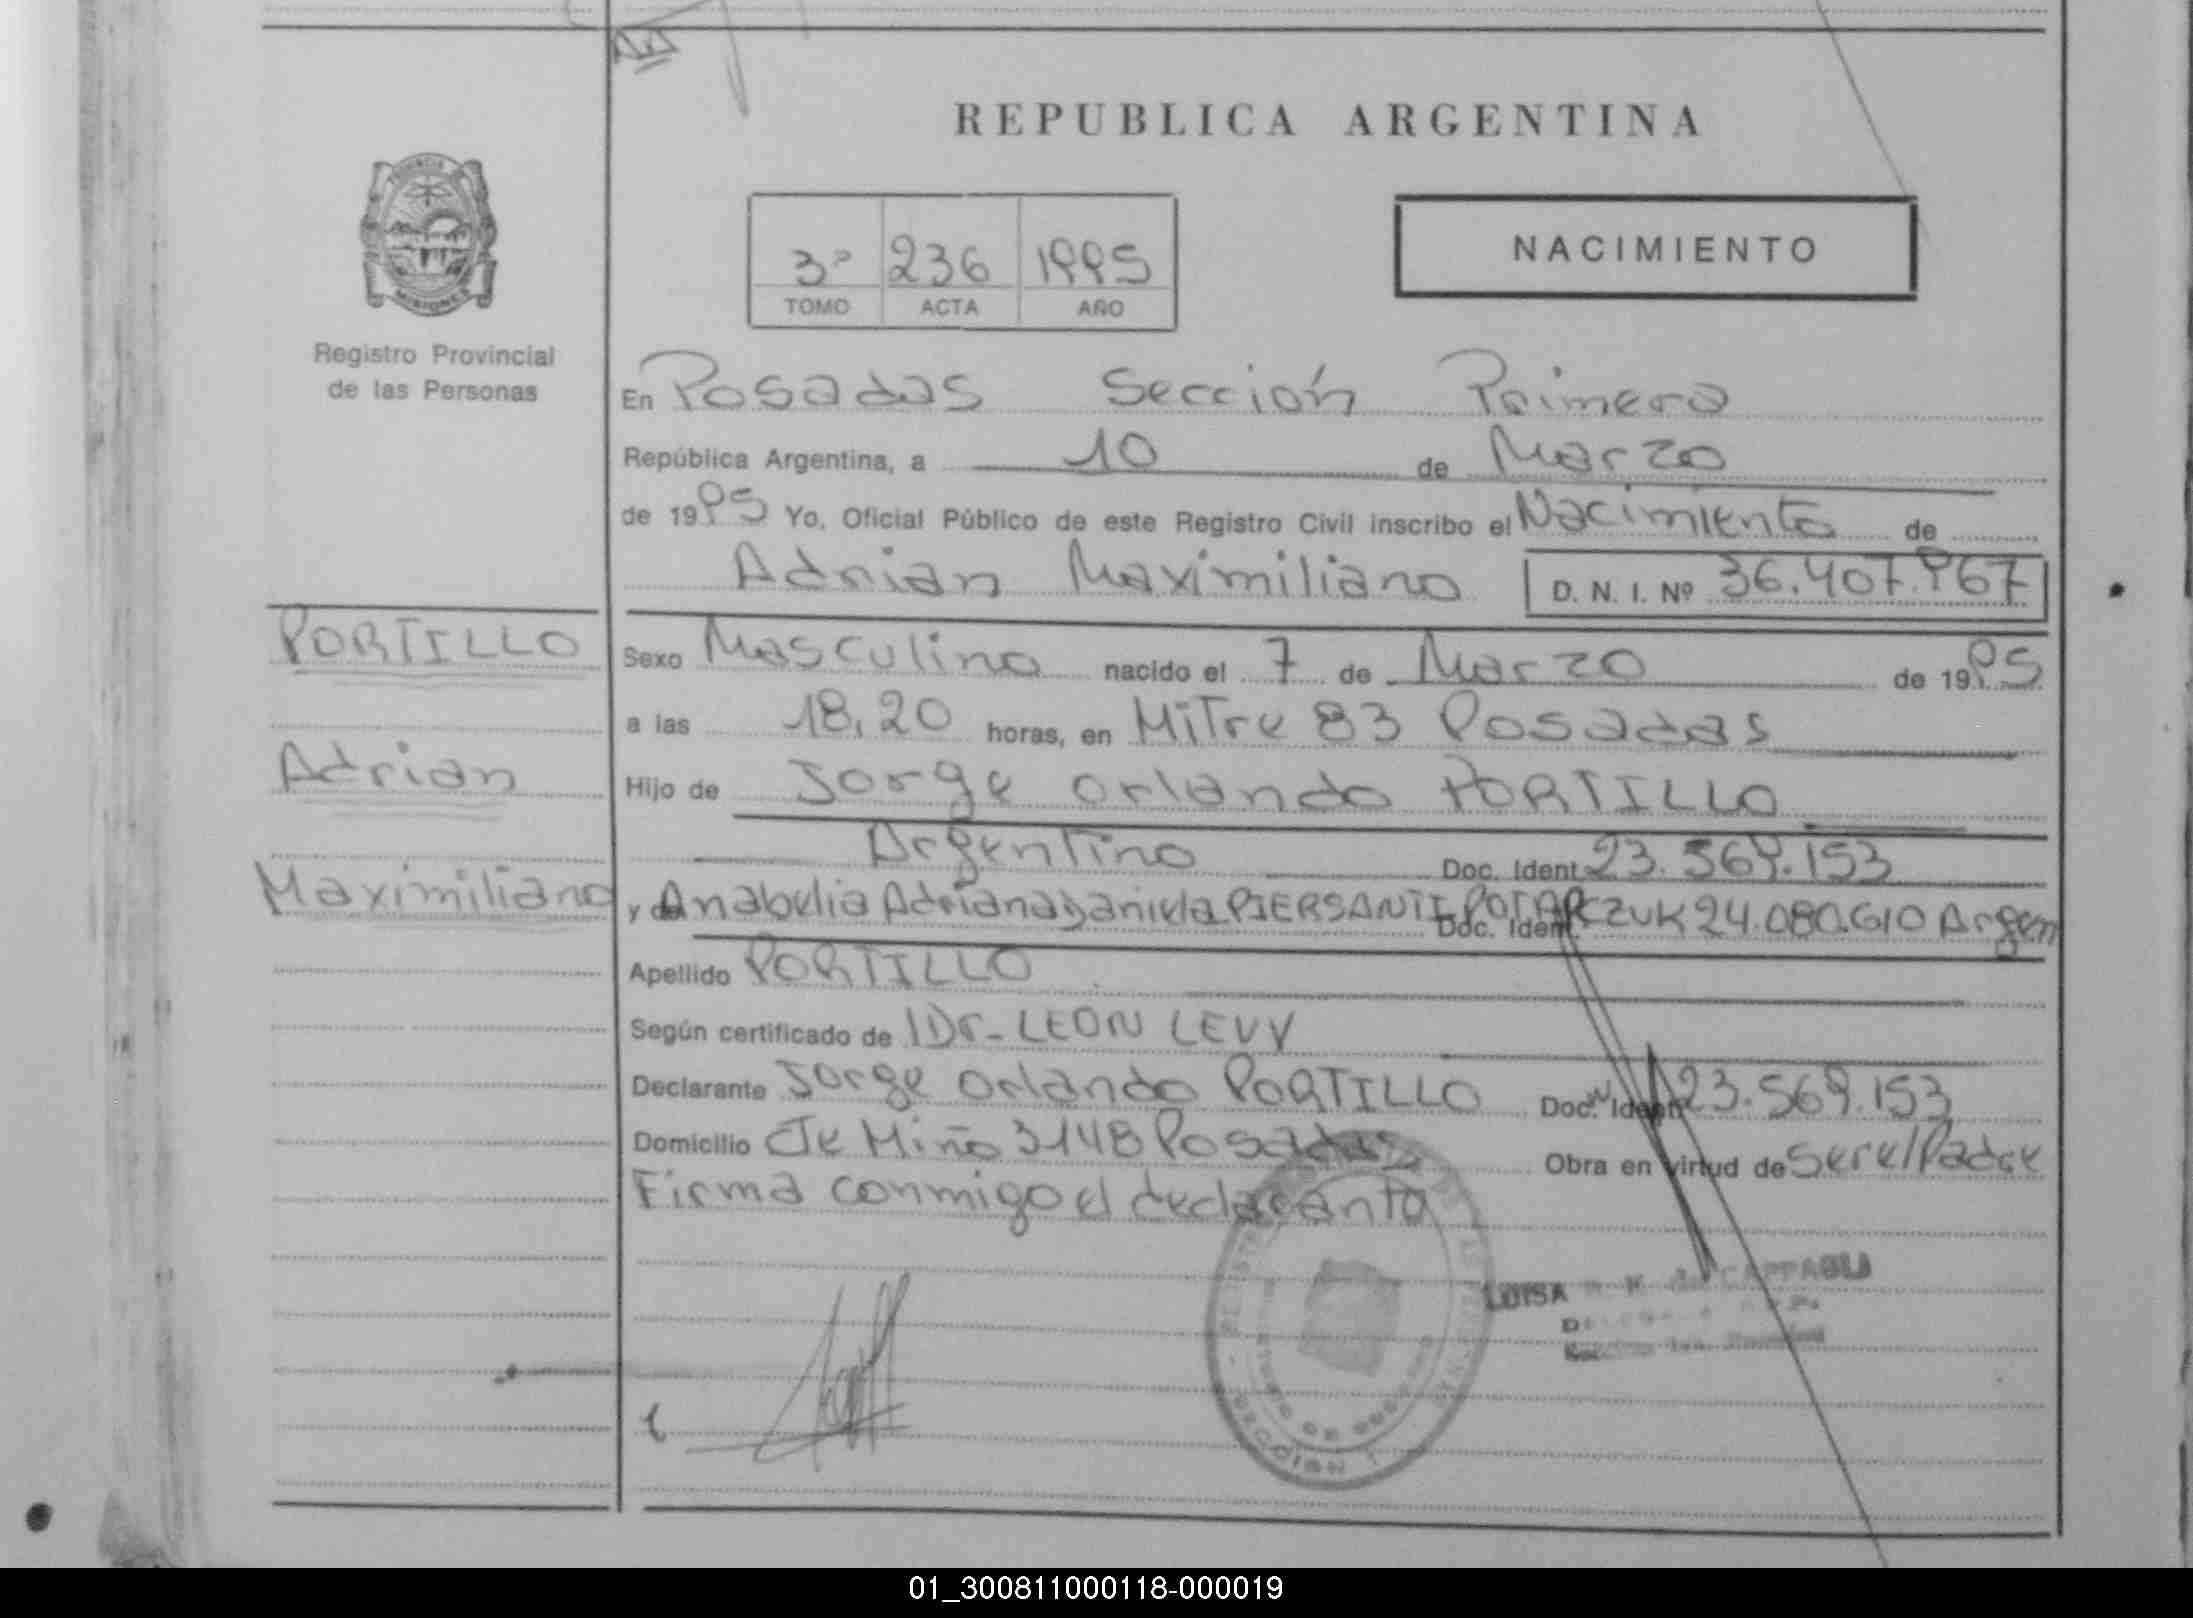 REPUBLICA ARGENTINA
PROVINCIA
MISIONES
Registro Provincial
de las Personas
3º 236 1995
TOMO ACTA AÑO
NACIMIENTO
En Posadas Sección Primera
República Argentina, a 10 de Marzo
de 1995 Yo, Oficial Público de este Registro Civil inscribo el Nacimiento de
Adrian Maximiliano D. N. I. Nº 36.407.967
PORTILLO
Adrian
Maximiliano
Sexo Masculino nacido el 7 de Marzo de 1995
a las 18,20 horas, en Mitre 83 Posadas
Hijo de Jorge Orlando PORTILLO
Argentino Doc. Ident. 23.569.153
y de Anabelia Adriana Daniela PIERSANTI POTARCZUK Doc. Ident. 24.080.610 Argen
Apellido PORTILLO
Según certificado de Dr- LEON LEVY
Declarante Jorge Orlando PORTILLO Doc. Ident. 23.569.153
Domicilio Miño 3148 Posadas Obra en virtud de Ser el Padre
Firma conmigo el declarante
LUISA CAPPAGLI
SECCION 1
01_300811000118-000019